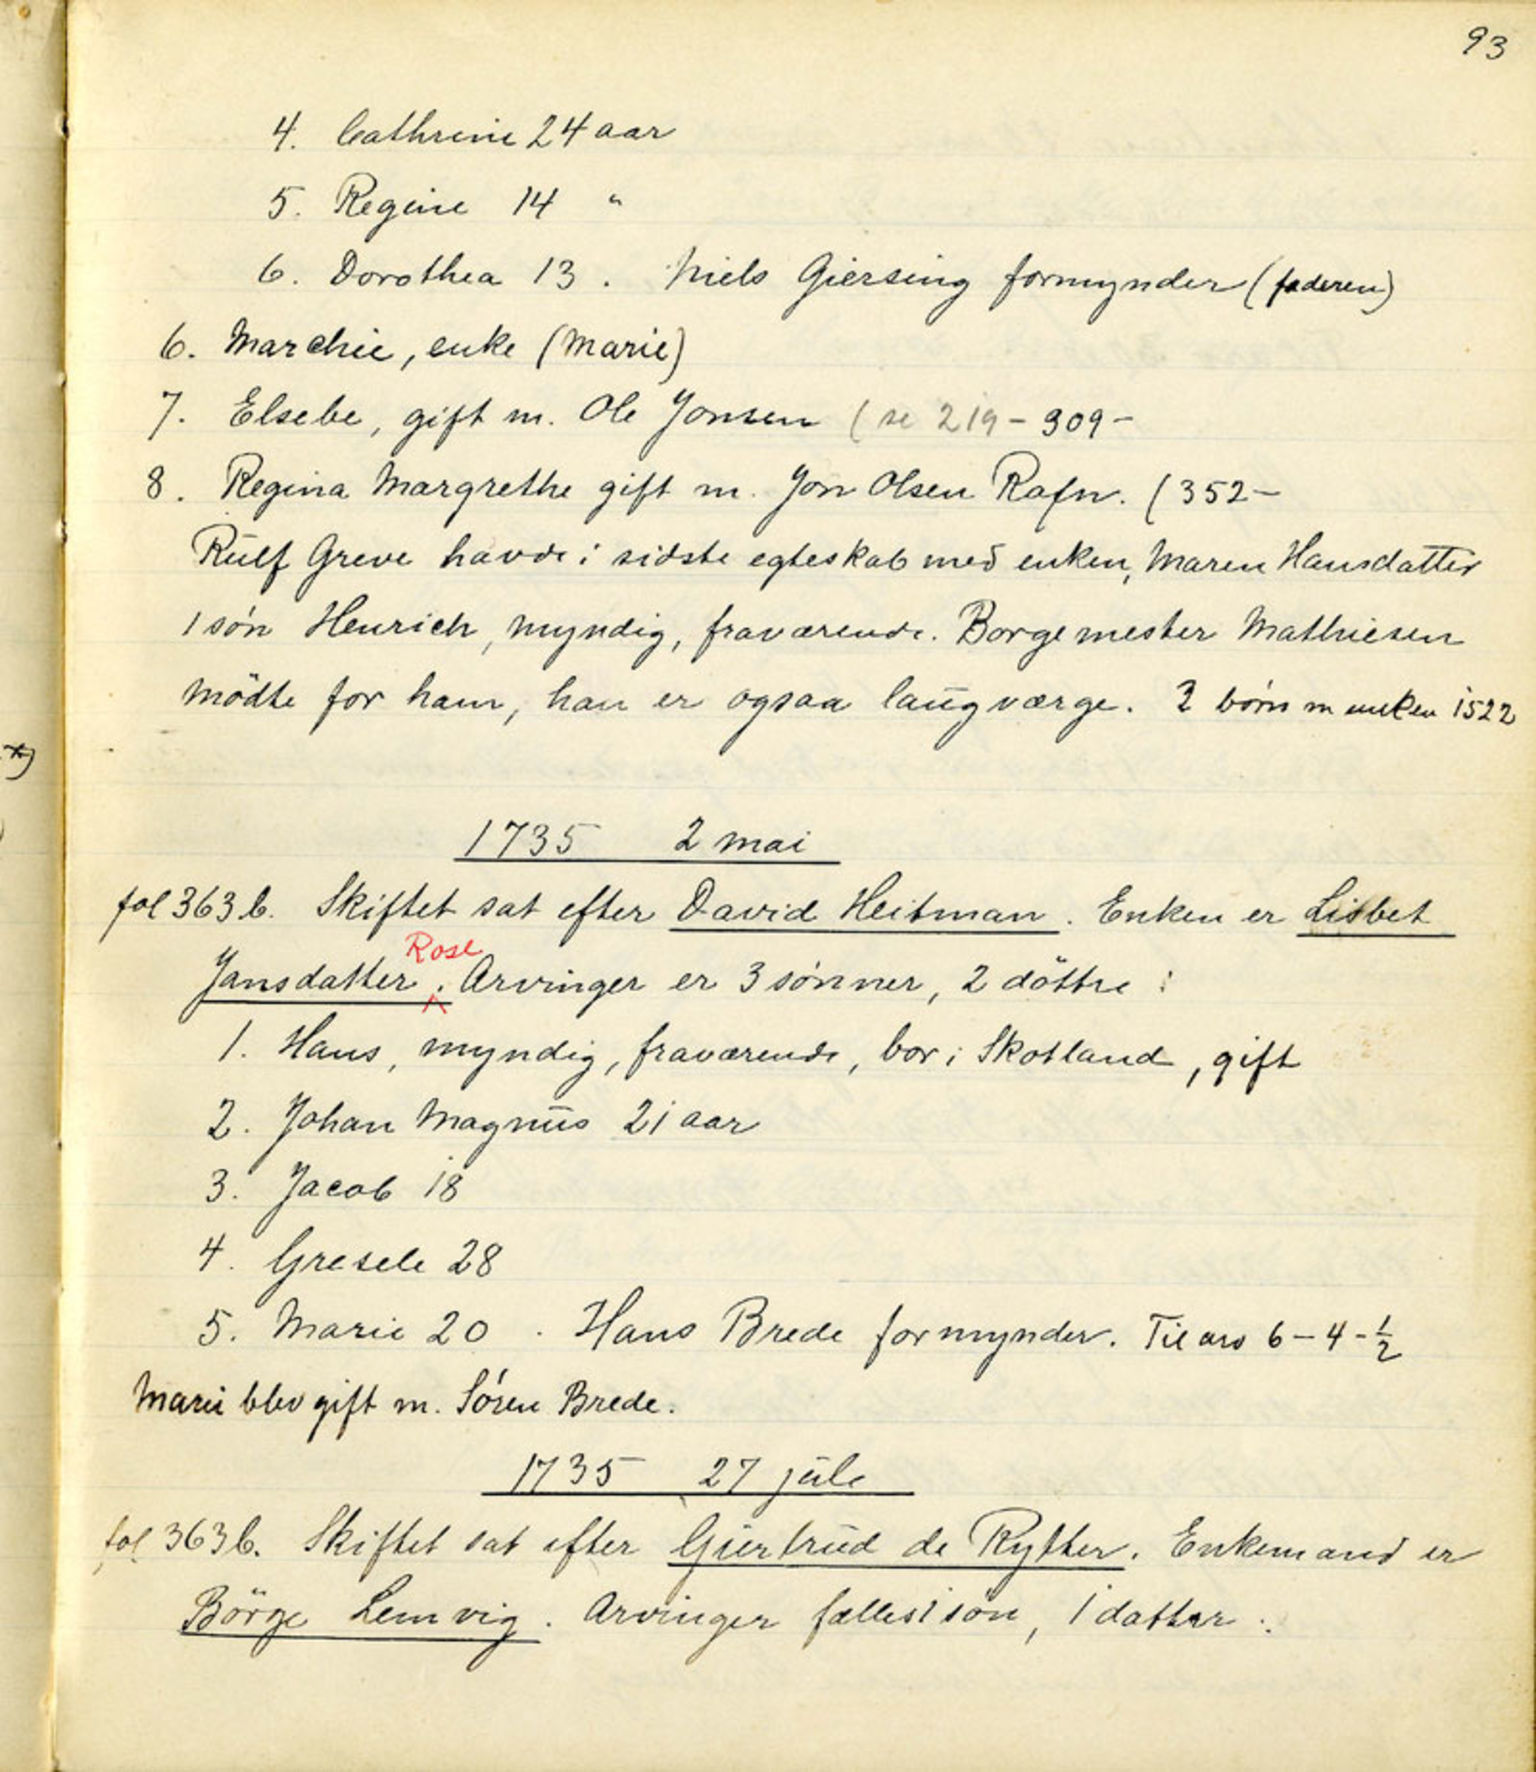 93
4. Cathrine 24 aar
5. Regine 14 "
6. Dorothea 13. Niels Giersing formynder (faderen)
6. Marchie, enke (Marie)
7. Elsebe, gift m. Ole Jonsen (se 219 - 309 -
8. Regina Margrethe gift m. Jon Olsen Rafn. (352 -
Rülf Greve havde i sidste egteskab med enken, Maren Hansdatter
1 sön Henrich, myndig, fraværende. Borgemester Mathiesen
mödte for ham, han er ogsaa laügværge. 2 börn m enken 1522
*)
1735 2 mai
fol 363 b. Skiftet sat efter David Heitman. Enken er Lisbet
Rose
Jansdatter. Arvinger er 3 sönner, 2 döttre :
1. Hans, myndig, fraværende, bor i Skotland, gift
2. Johan Magnüs 21 aar
3. Jacob 18
4. Gresele 28
5. Marie 20. Hans Brede formynder. Til arv 6 - 4 - ½
Marie blev gift m. Sören Brede.
1735 27 jüle
fol 363 b. Skiftet sat efter Giertrüd de Rytter. Enkemand er
Börge Lemvig. Arvinger fælles 1 sön, 1 datter :